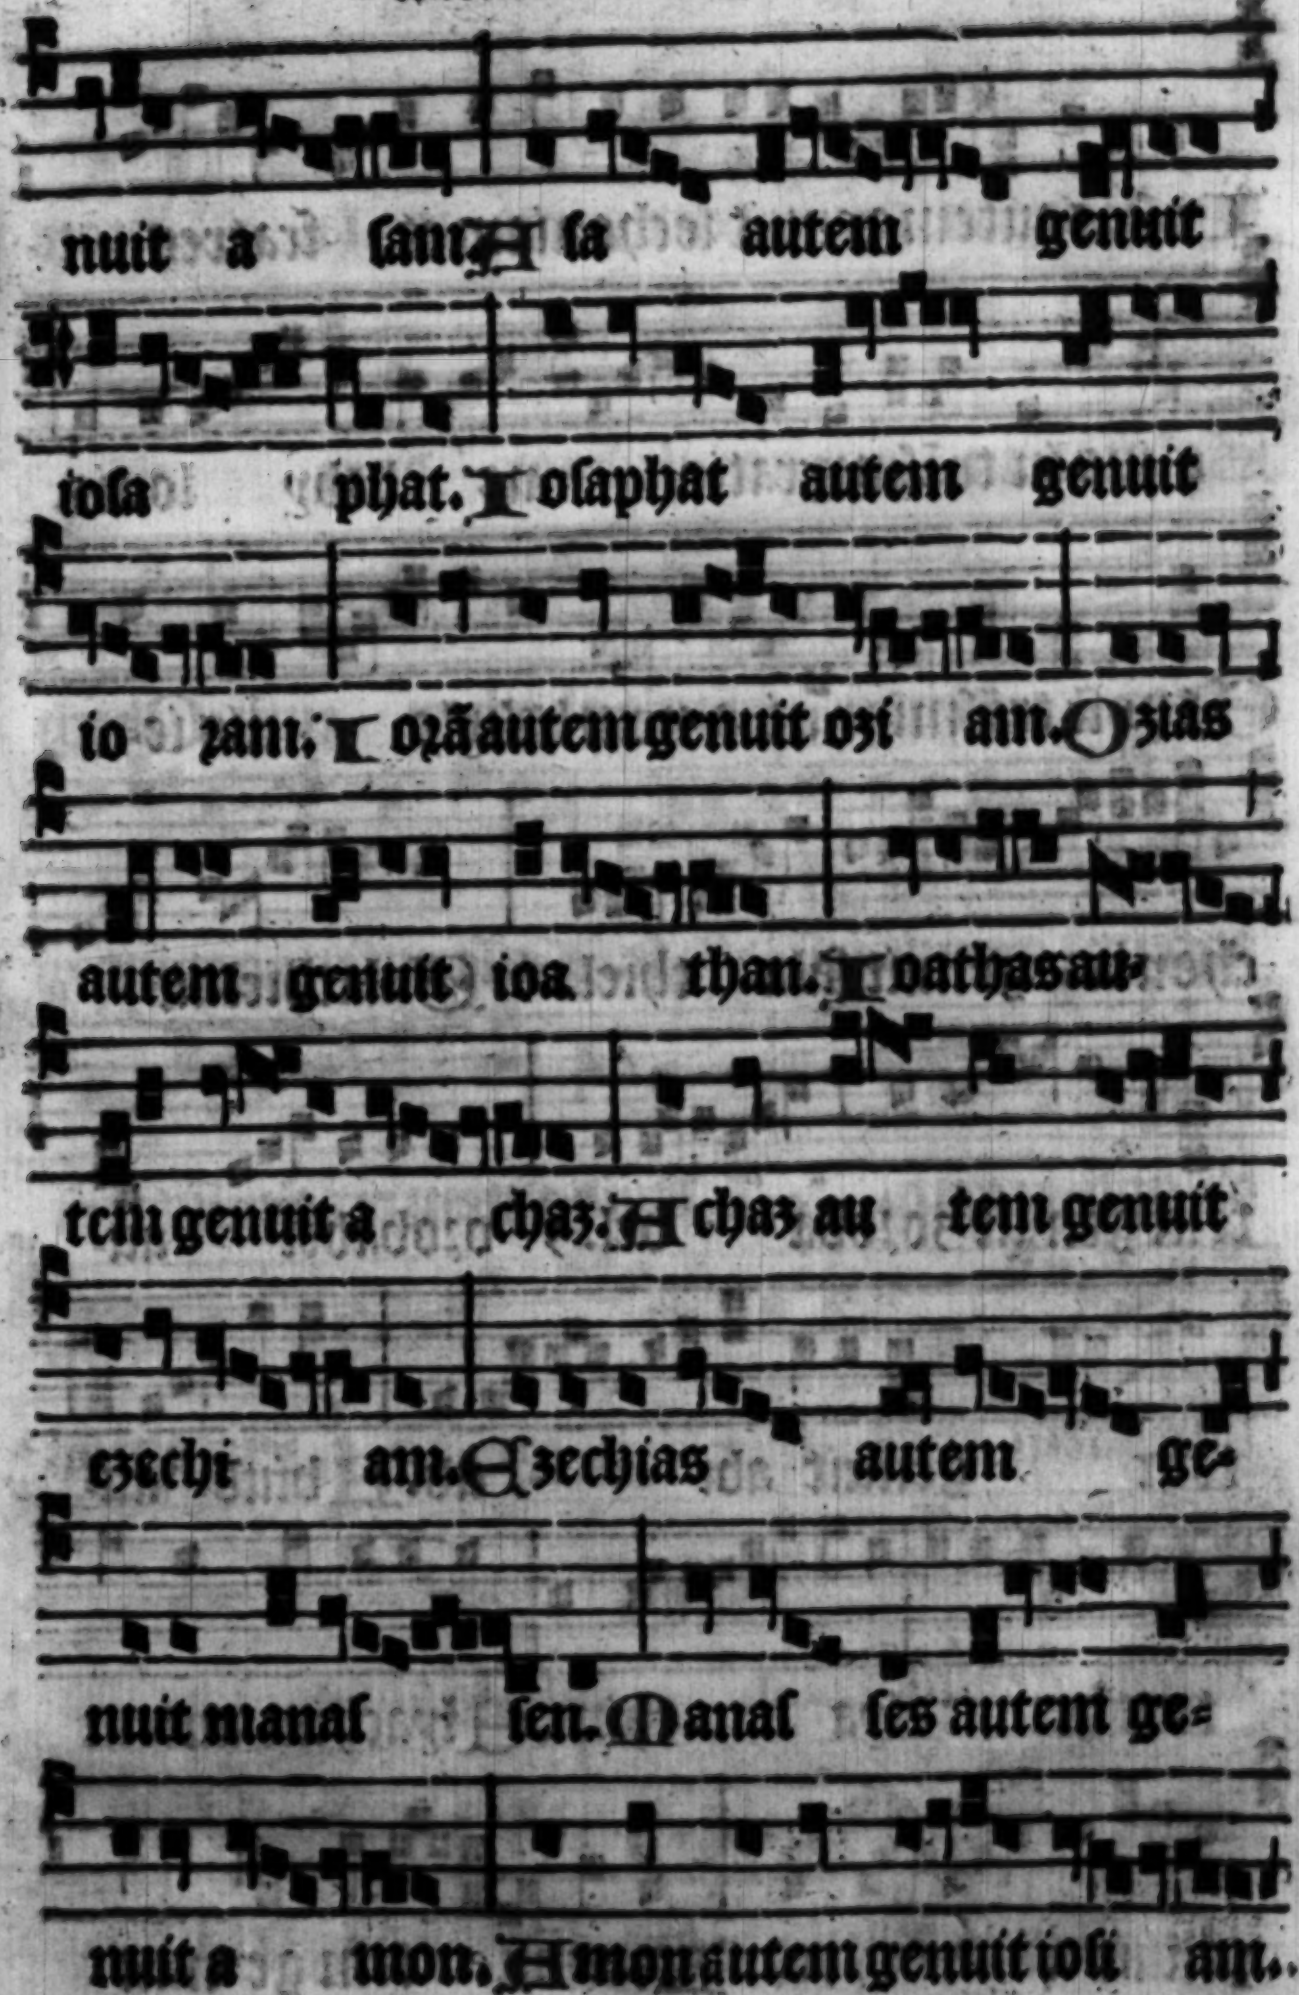 nuit a ſam. A ſa autem genuit
ioſa phat. I oſaphat autem genuit
io ꝛam. I oꝛã autem genuit ozi am. O zias
autem genuit ioa than. I oathas au-
tem genuit a chaz. A chaz au tem genuit
ezechi am. E zechias autem ge-
nuit manaſ ſen. M anaſ ſes autem ge-
nuit a mon. A mon autem genuit ioſi am.